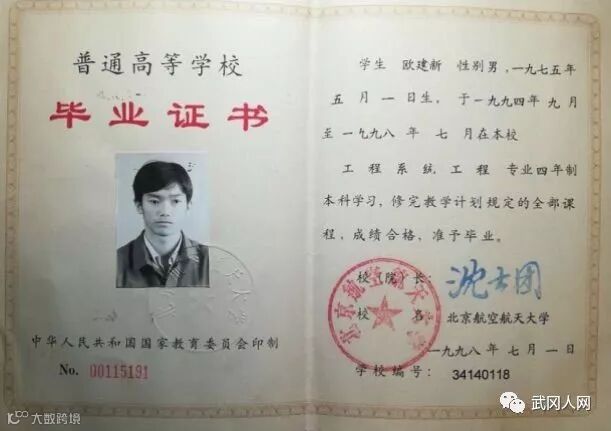 普通高等学校
毕业证书
中华人民共和国国家教育委员会印制
No. 00115191
学生 欧建新 性别男,一九七五年
五月一日生,于一九九四年九月
至一九九八年七月在本校
工程系统工程 专业四年制
本科学习,修完教学计划规定的全部课
程,成绩合格,准予毕业。
校(院)长: 沈士团
校名: 北京航空航天大学
北京航空航天大学
一九九八年七月一日
学校编号: 34140118
大数跨境
武冈人网